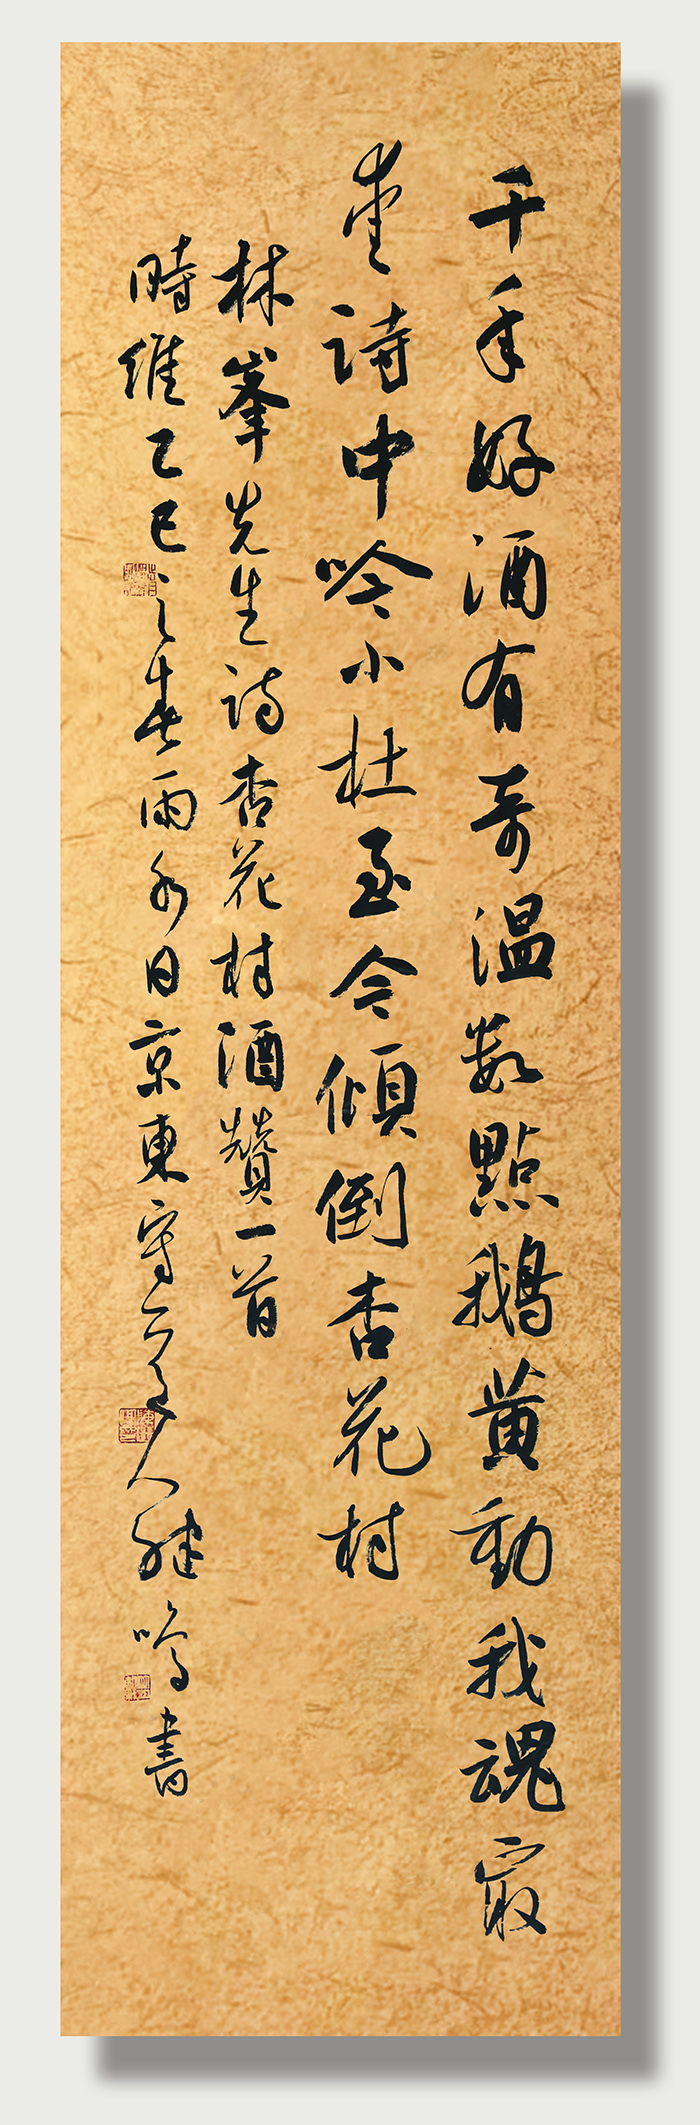 千年好酒有奇温数點鵝黄動我魂最
爱詩中吟小杜至今傾倒杏花村
林峯先生诗杏花村酒贊一首
時維乙巳之春雨水日京東守一道人継鳴書